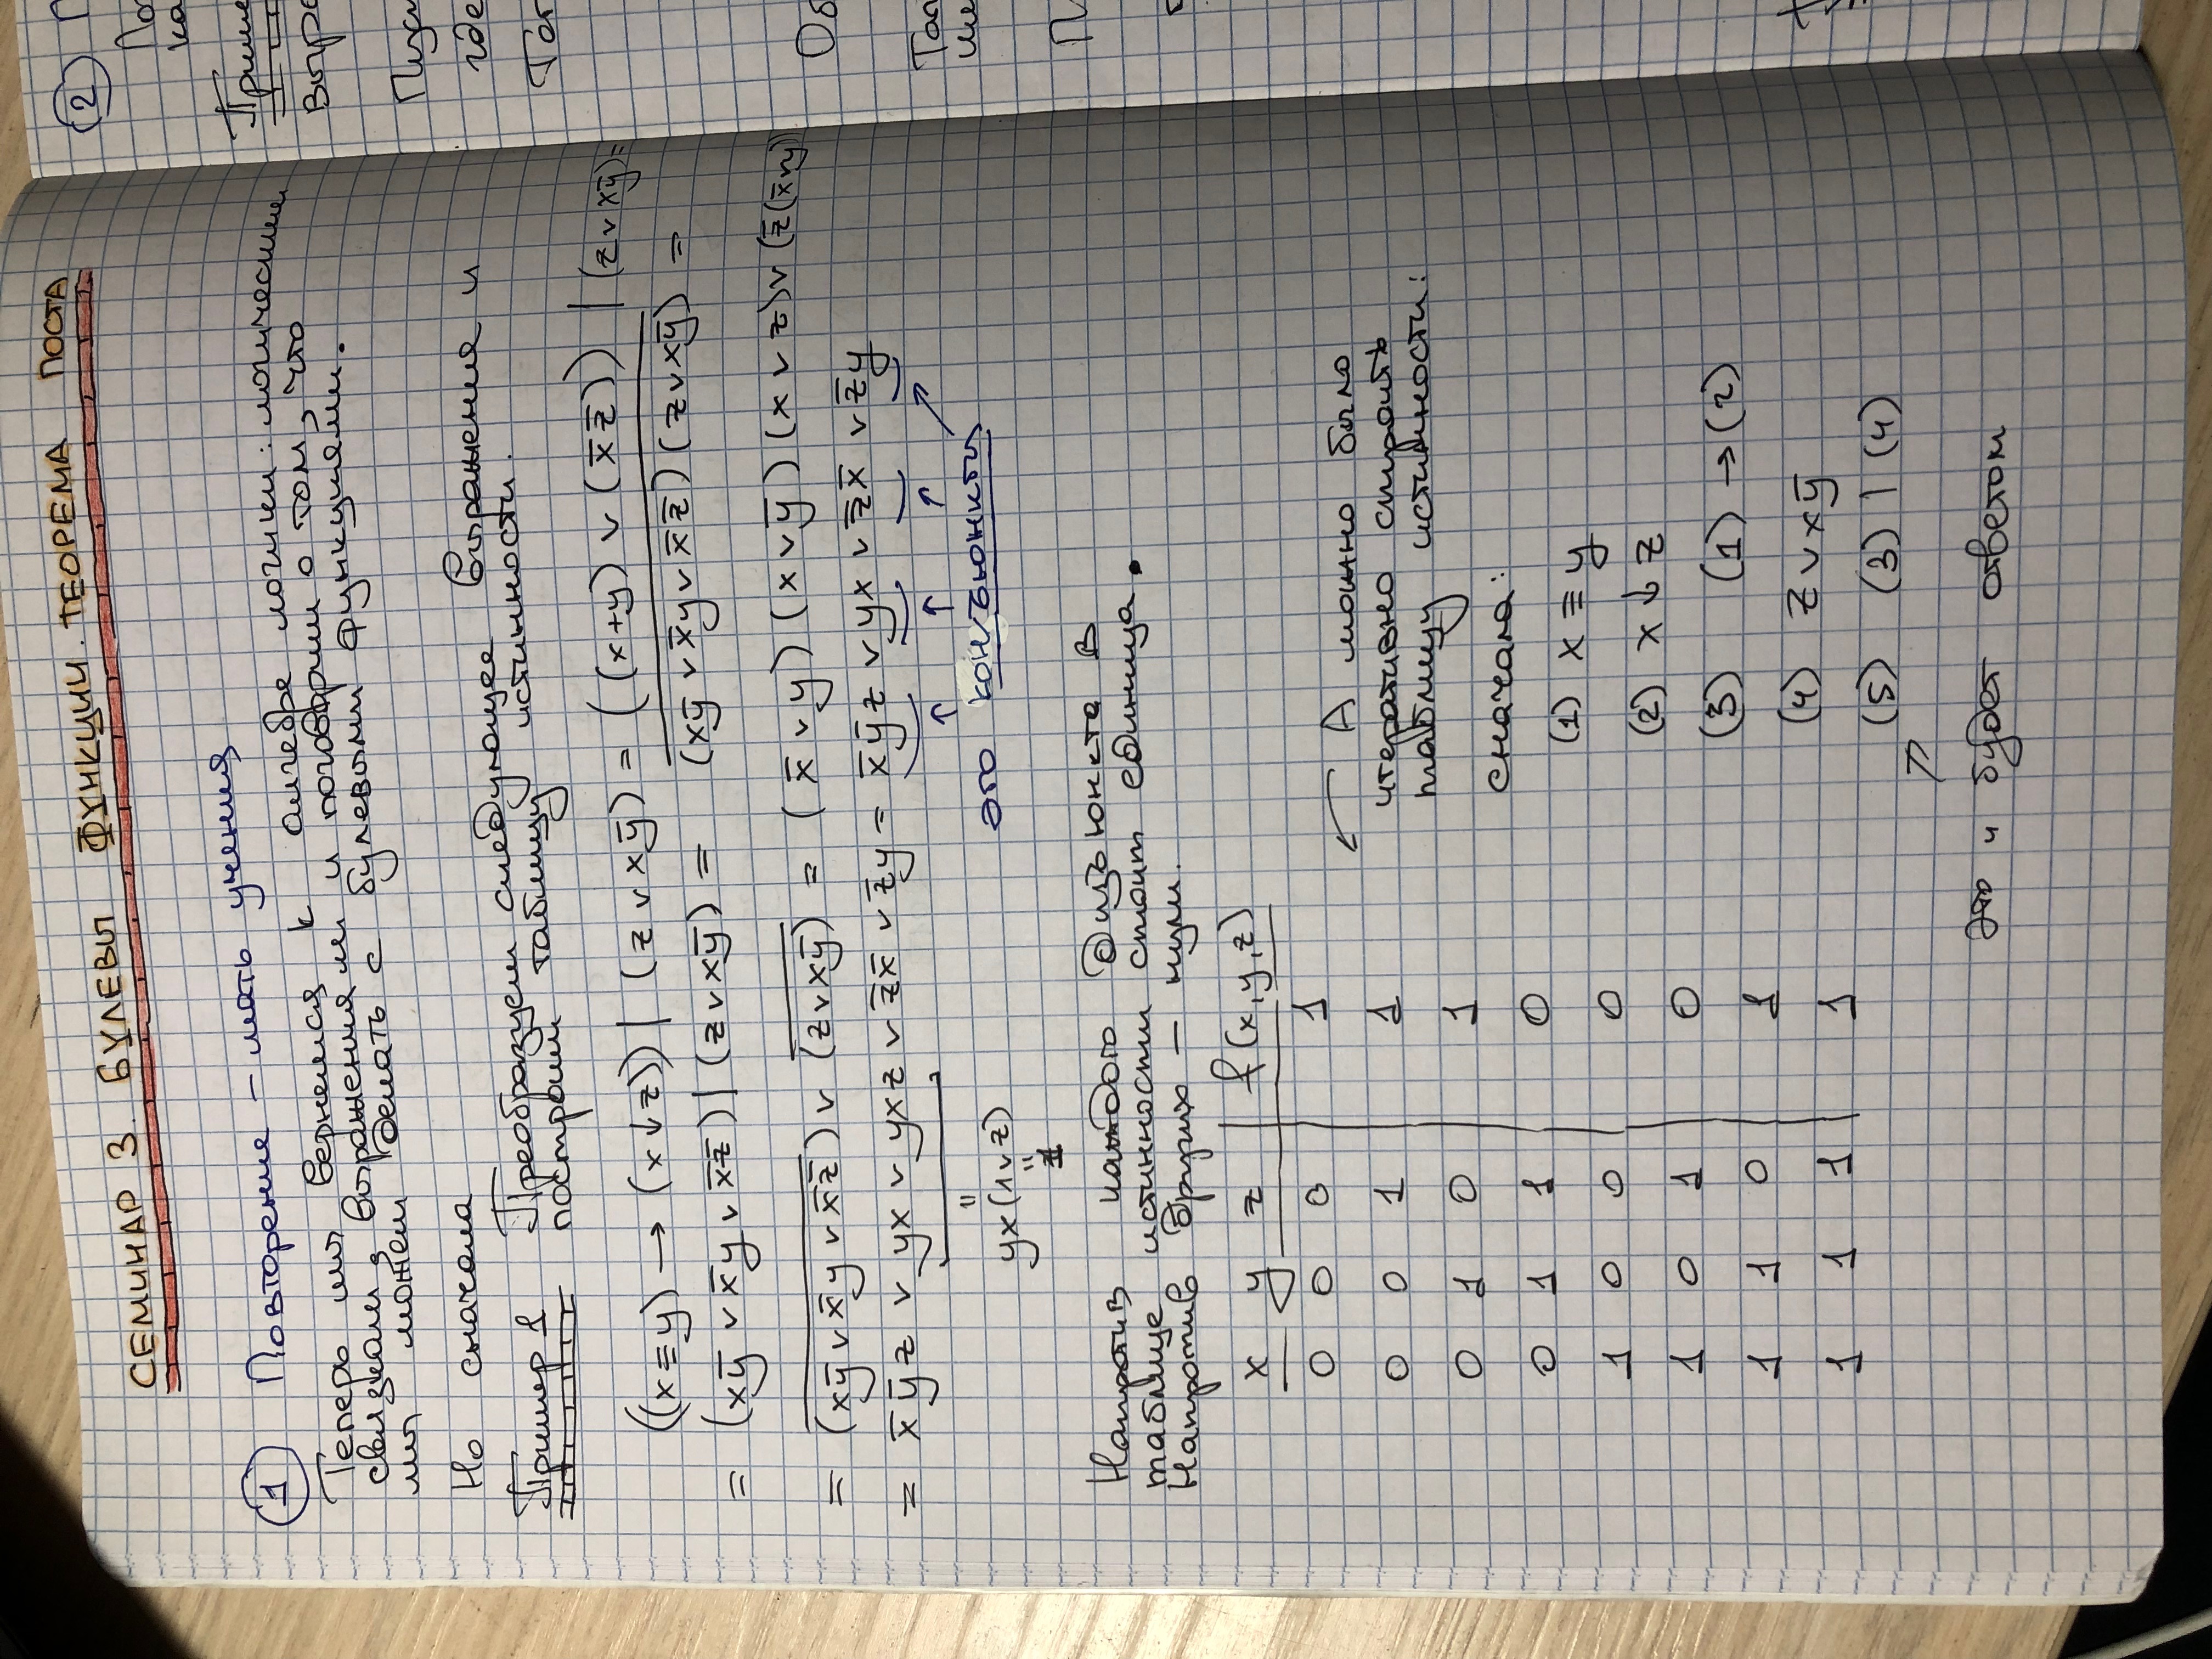 СЕМИНАР 3. БУЛЕВЫ ФУНКЦИИ. ТЕОРЕМА ПОСТА
① Повторение – мать учения
Теперь мы вернемся к алгебре логики: логическим
связкам, выражениям и поговорим о том, что
мы можем делать с булевыми функциями.
Но сначала
Пример 1 Преобразуем следующее выражение и
построим таблицу истинности.
((x ≡ y) → (x ↓ z)) | (z ∨ xy̅) = ((x + y) ∨ (x̅ z̅)) | (z ∨ xy̅) =
= (xy̅ ∨ x̅y ∨ x̅z̅) | (z ∨ xy̅) = \overline{(xy̅ ∨ x̅y ∨ x̅z̅)(z ∨ xy̅)} =
= \overline{(xy̅ ∨ x̅y ∨ x̅z̅)} ∨ \overline{(z ∨ xy̅)} = (x̅ ∨ y)(x ∨ y̅)(x ∨ z) ∨ (z̅(x̅ ∨ y))
= x̅y̅z ∨ yx ∨ yxz ∨ z̅x̅ ∨ z̅y = x̅y̅z ∨ yx ∨ z̅x̅ ∨ z̅y
↑ ↑ ↑ ↗
"
yx(1∨z)
"
1
это конъюнкты
Напротив каждого дизъюнкта в
таблице истинности стоит единица.
Напротив других – нули.
x y z | f(x,y,z)
0 0 0 | 1
0 0 1 | 1
0 1 0 | 1
0 1 1 | 0
1 0 0 | 0
1 0 1 | 0
1 1 0 | 1
1 1 1 | 1
← А можно было
итеративно строить
таблицу истинности:
сначала:
(1) x ≡ y
(2) x ↓ z
(3) (1) → (2)
(4) z ∨ xy̅
(5) (3) | (4)
↗
это и будет ответом
②
По
ка
Приме
выра
где
Об